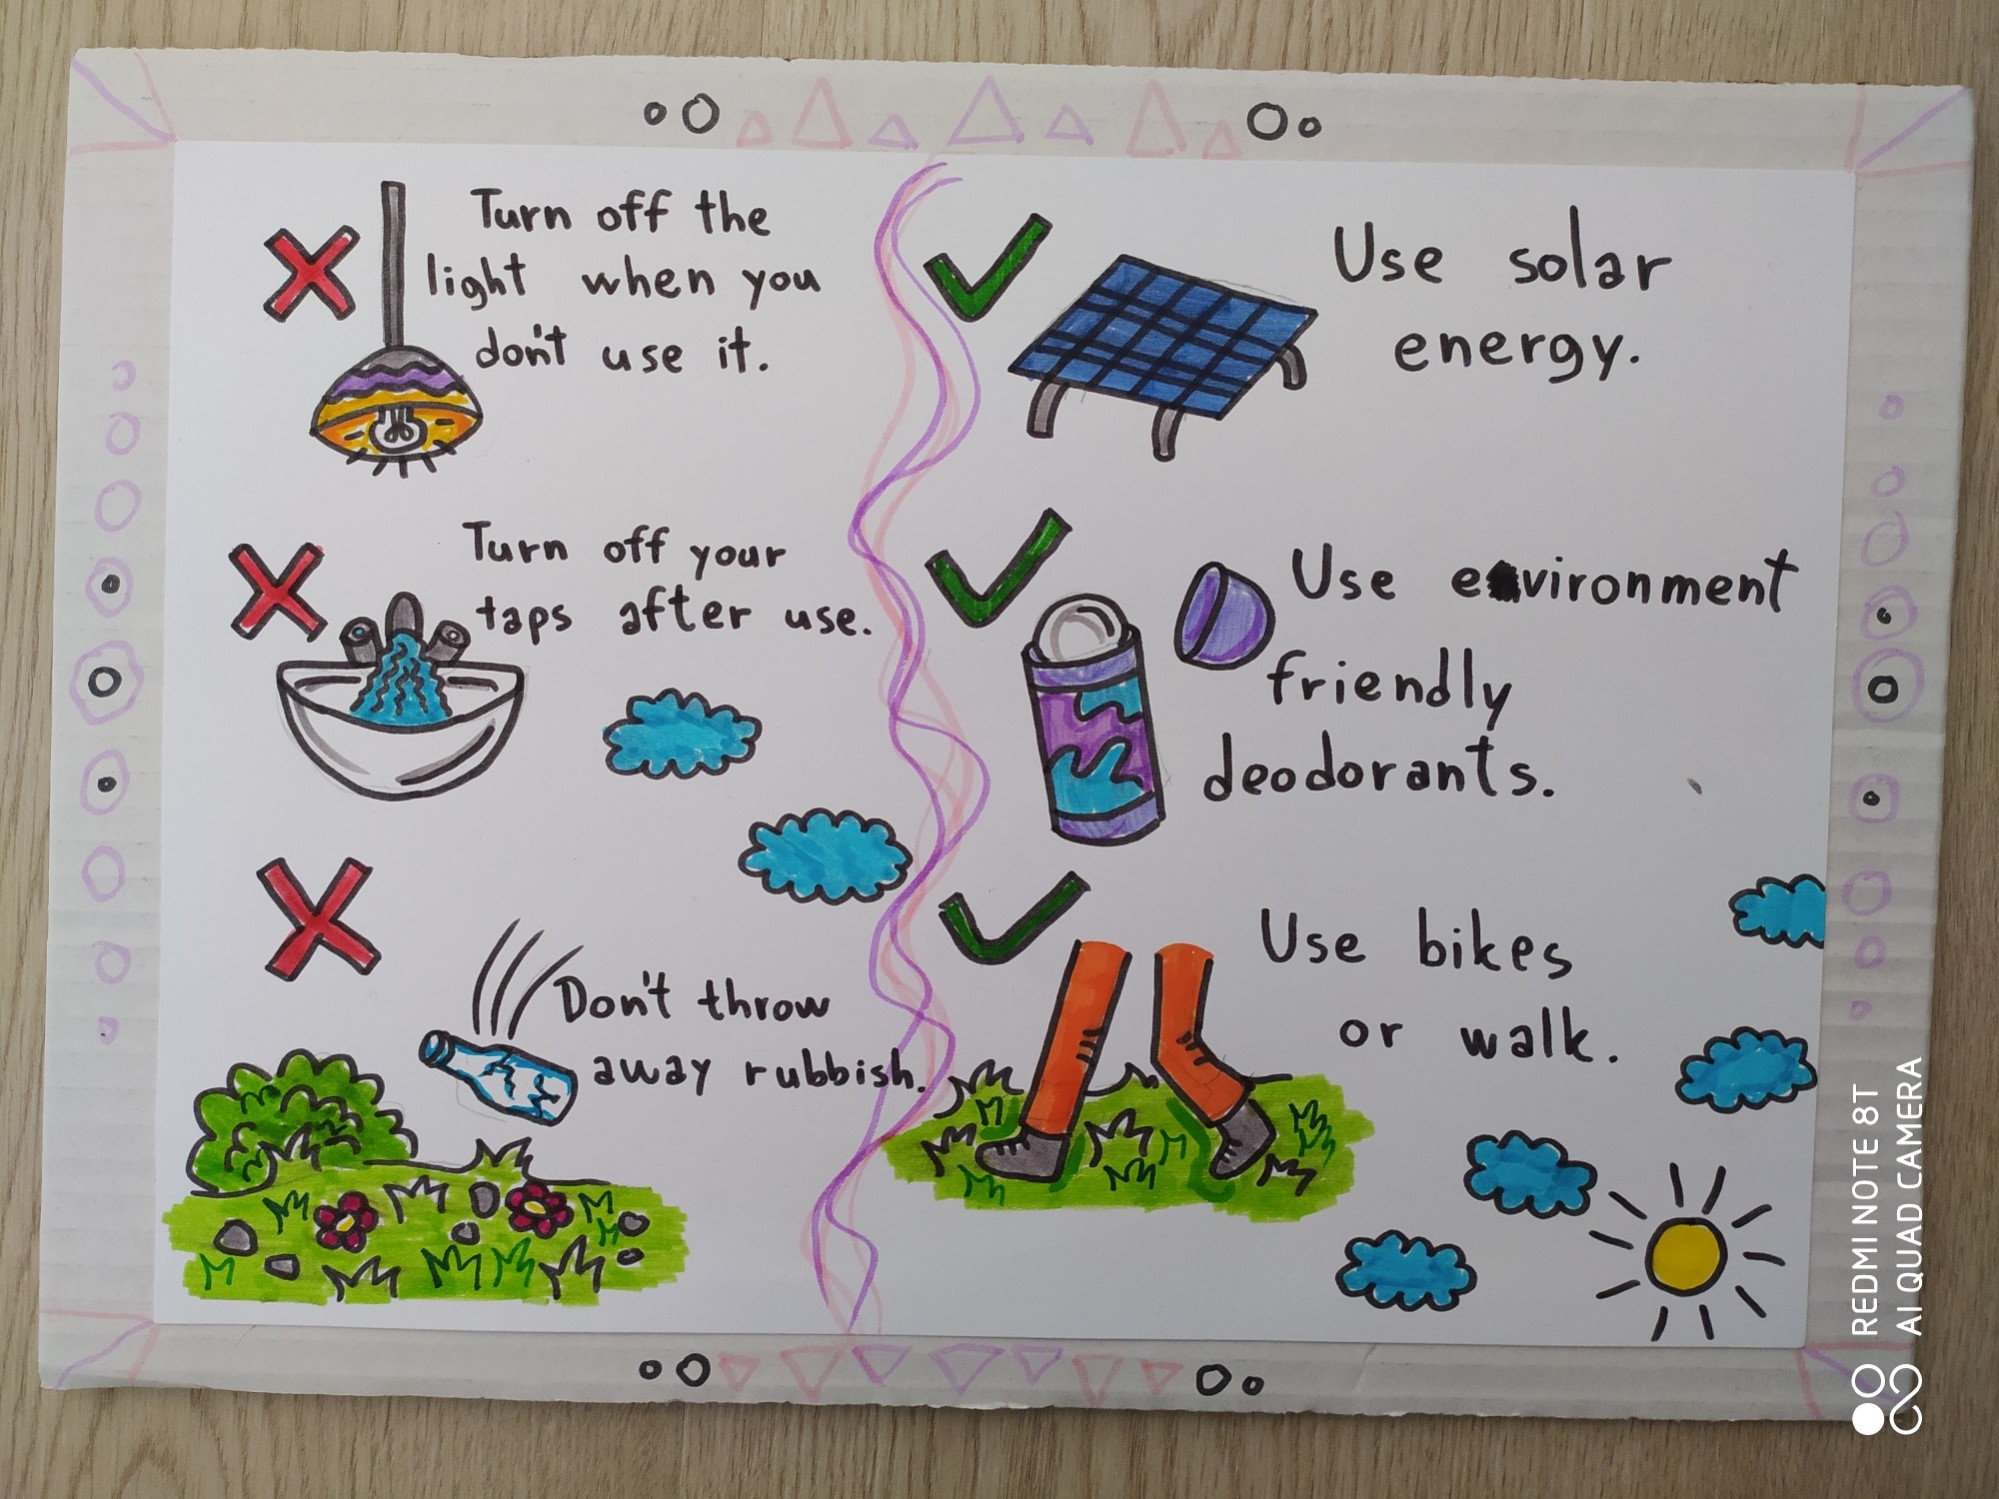 Turn off the
light when you
don't use it.
Turn off your
taps after use.
Don't throw
away rubbish.
Use solar
energy.
Use environment
friendly
deodorants.
Use bikes
or walk.
REDMI NOTE 8T
AI QUAD CAMERA